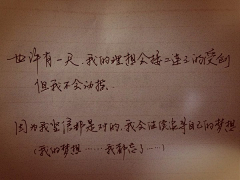 也许有一天，我的理想会接二连三的受创
但我不会动摇.
因为我坚信那是对的，我会继续追寻自己的梦想
（我的梦想……我都忘了……）